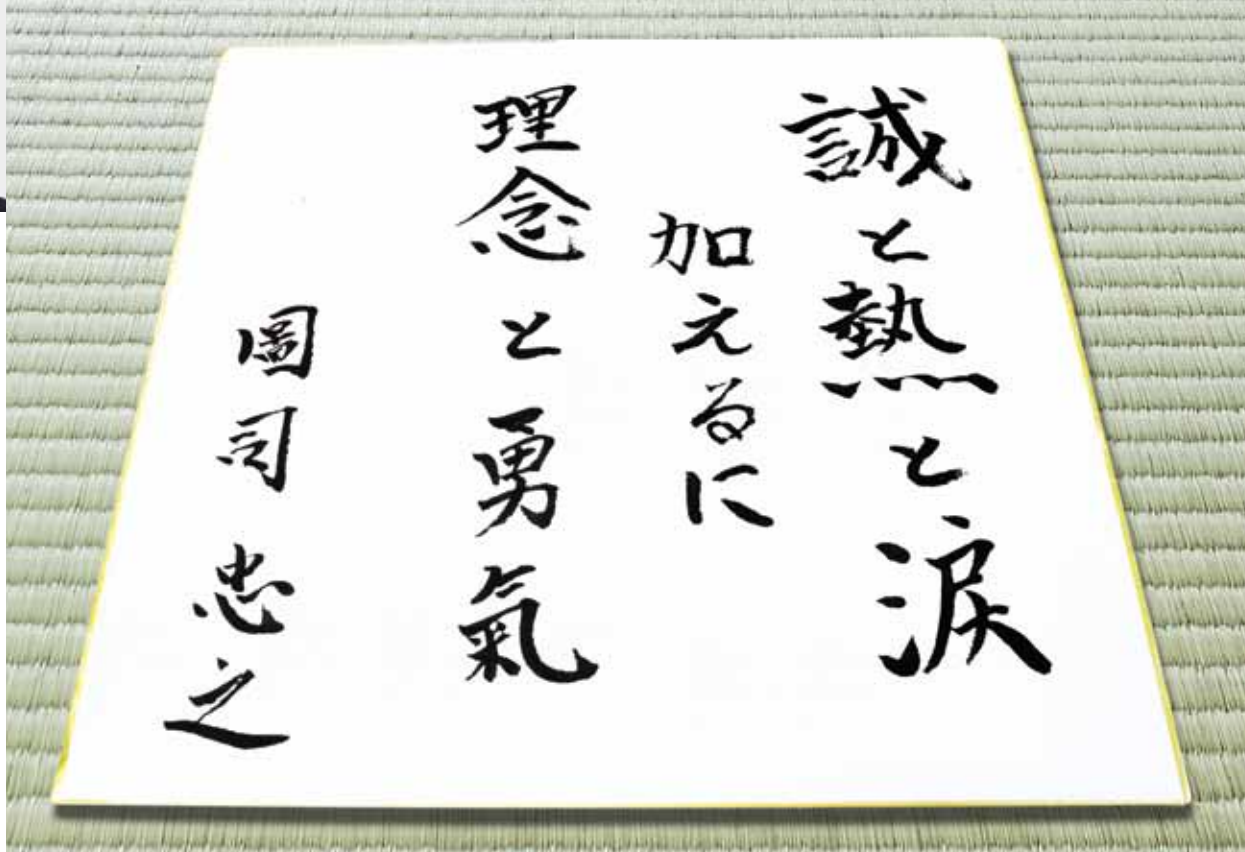 誠と熱と涙
加えるに
理念と勇氣
圖司忠之